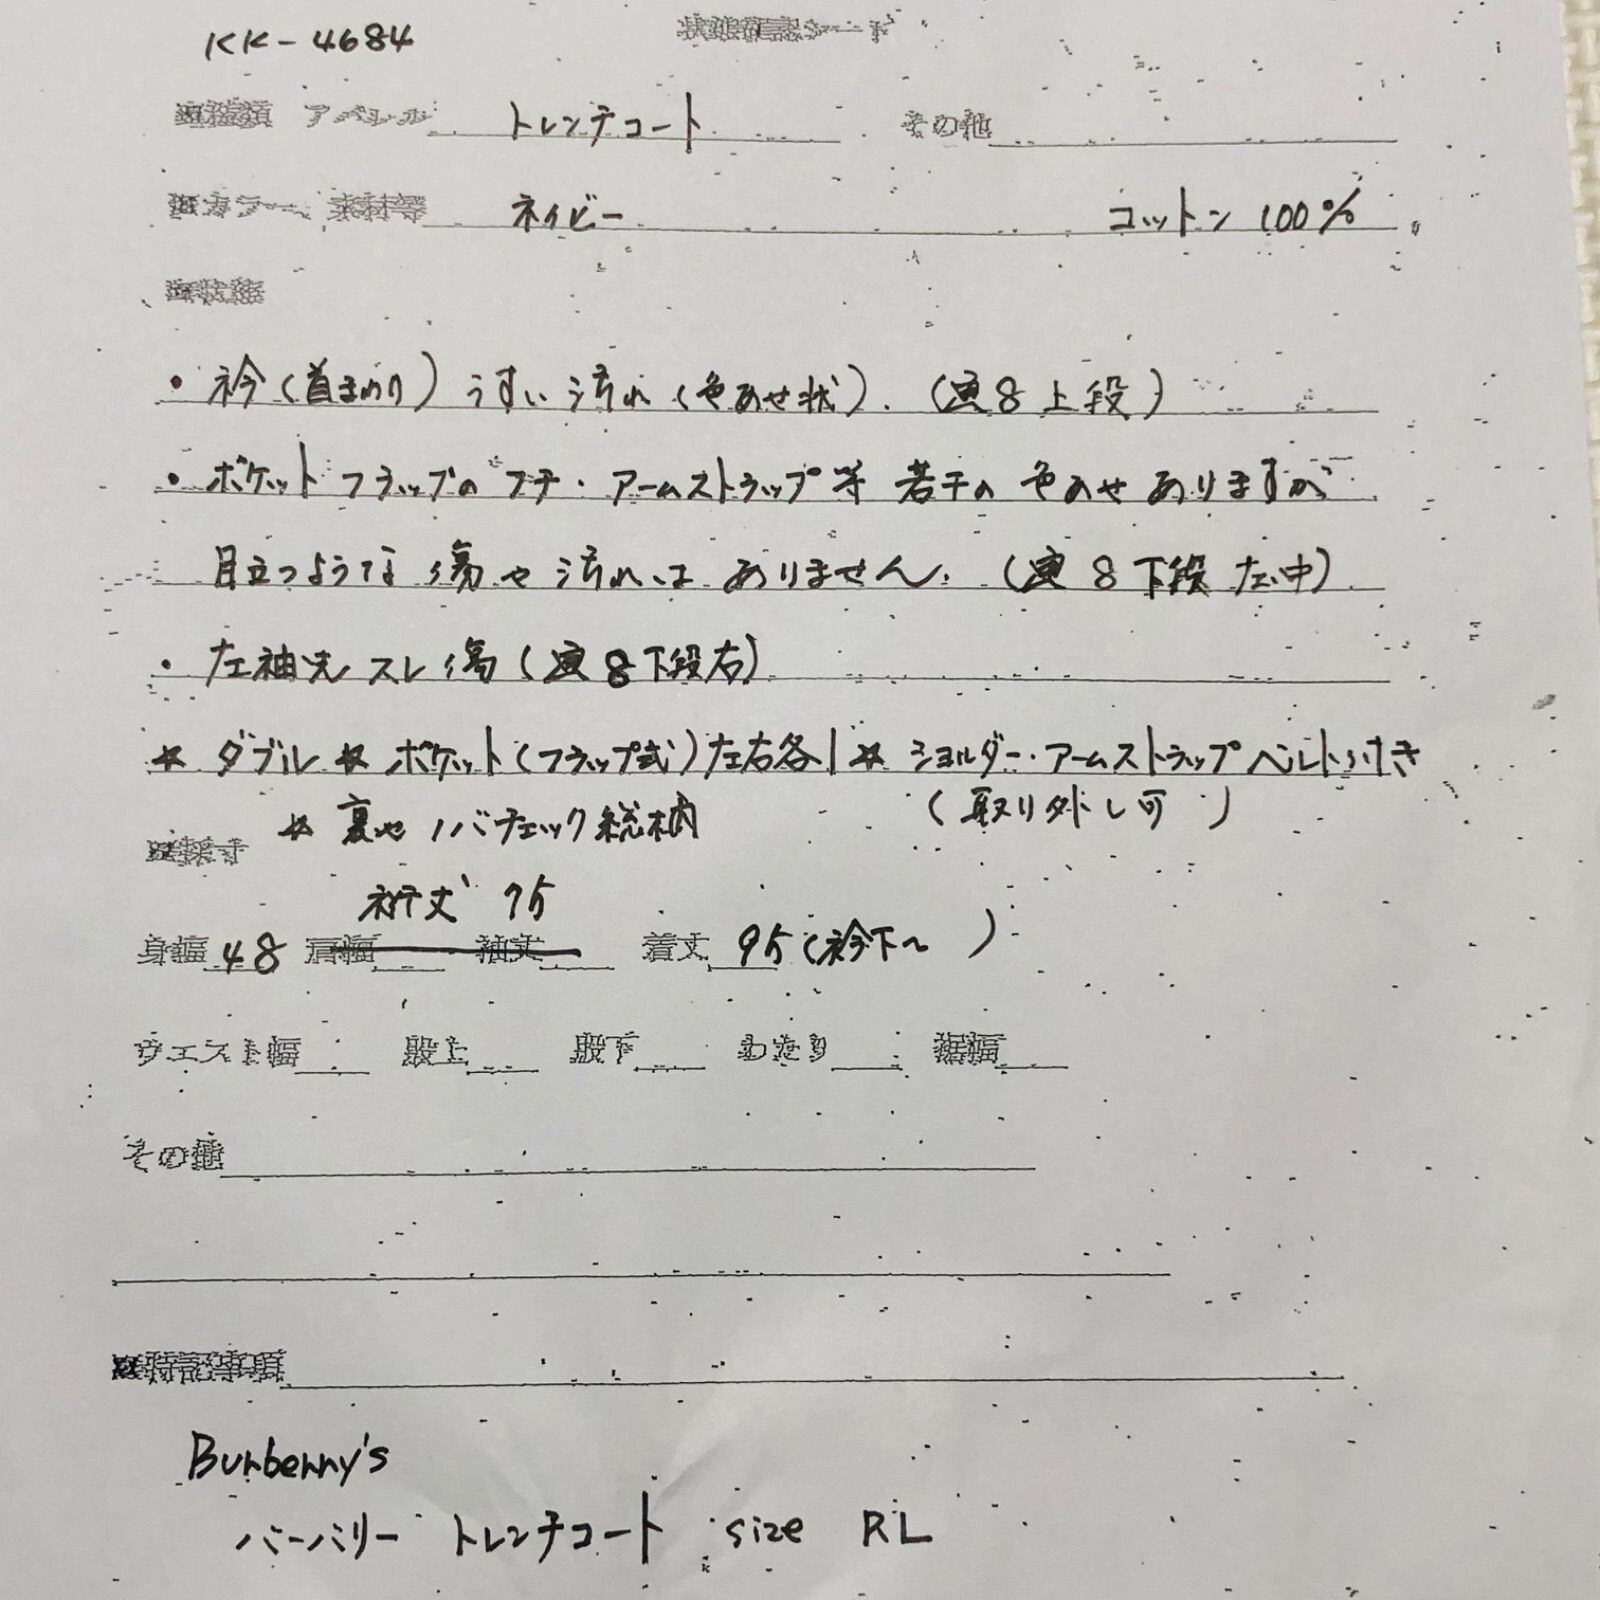 KK-4684 状態確認シート
種類 アパレル トレンチコート その他
カラー、素材等 ネイビー コットン 100%
状態
・衿(首まわり)うすい汚れ(色あせ状)。(画8上段)
・ポケットフラップのフチ・アームストラップ等 若干の色あせありますが
目立つような傷や汚れはありません。(画8下段左・中)
・左袖先スレ傷(画8下段右)
☆ ダブル ☆ ポケット(フラップ式)左右各1 ☆ ショルダー・アームストラップベルト付き
☆ 裏地ノバチェック総柄 (取り外し可)
採寸
裄丈 75
身幅 48 肩幅 袖丈 着丈 95(衿下〜 )
ウエスト幅 股上 股下 わたり 裾幅
その他
特記事項
Burberry's
バーバリー トレンチコート size RL